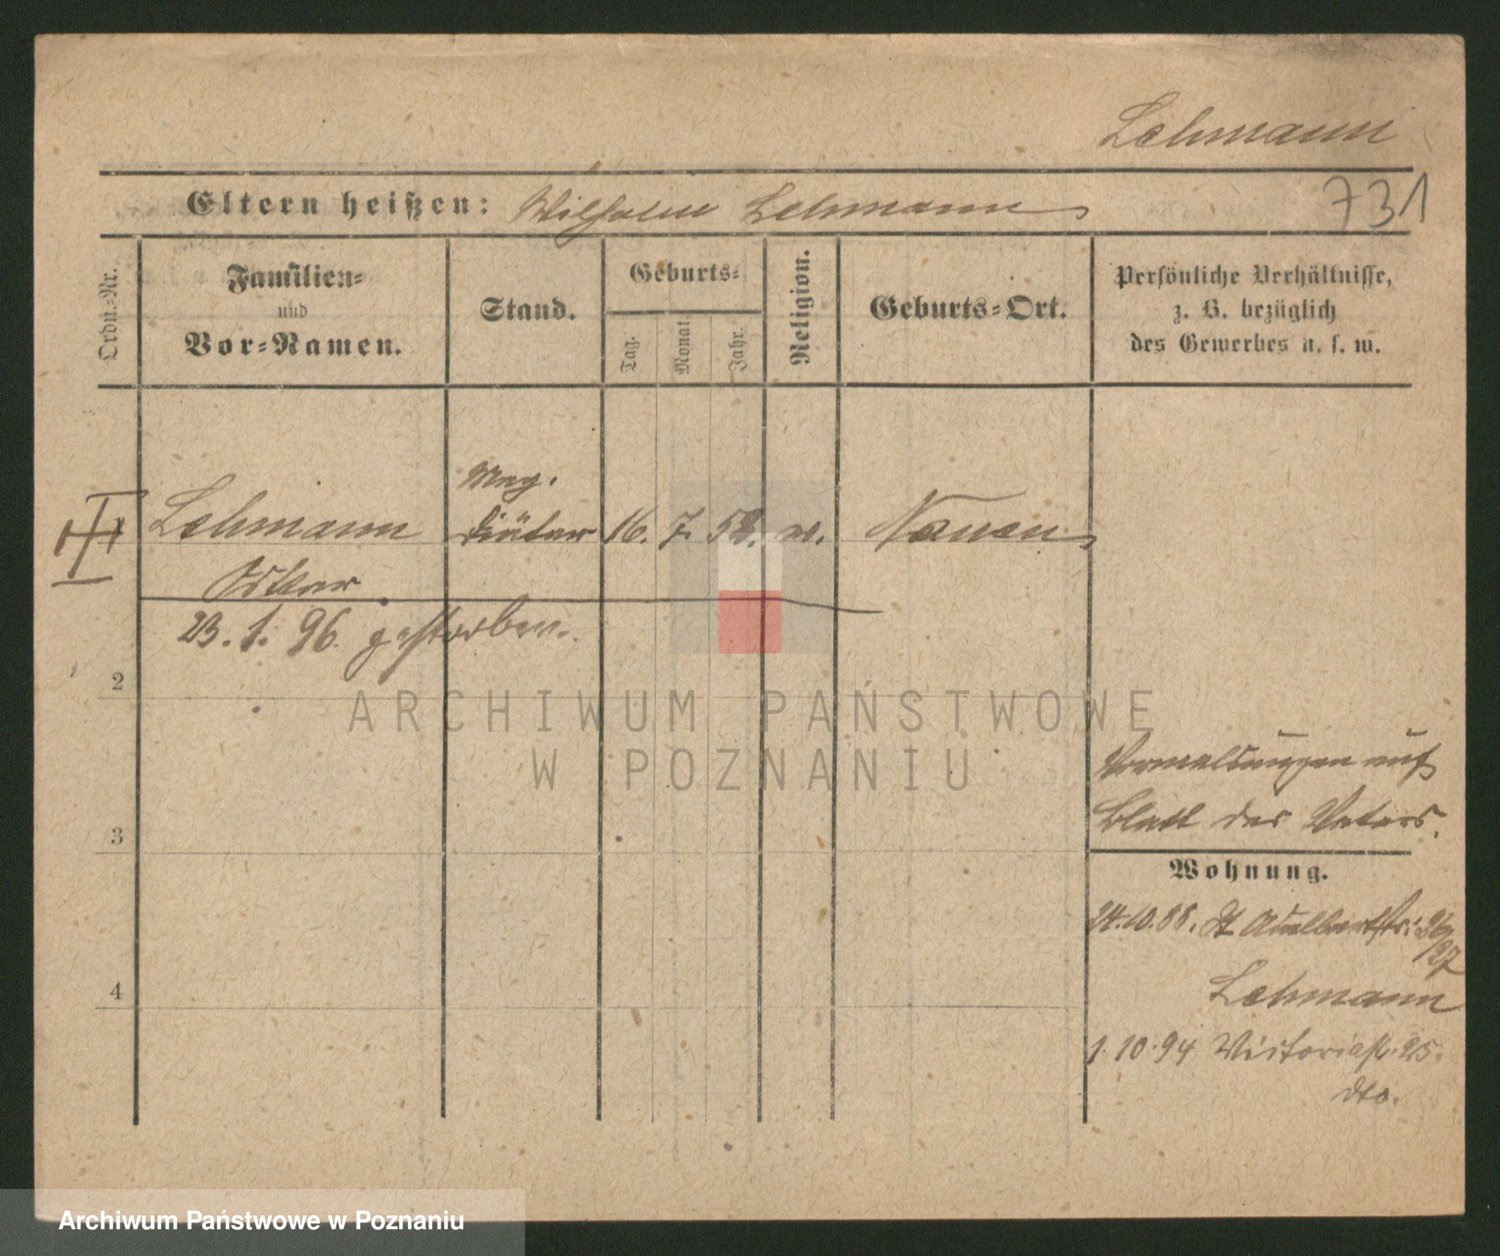 Lehmann
Eltern heißen: Wilhelm Lehmann
731
Ordn.-Nr.
Familien-
und
Vor-Namen.
Stand.
Geburts-
Tag.
Monat.
Jahr.
Religion.
Geburts-Ort.
Persönliche Verhältnisse,
z. B. bezüglich
des Gewerbes u. s. w.
Mag.
Lehmann Diätar 16. 7. 52. ev. Nauen
Oskar
23. 1. 96. gestorben.
2
ARCHIWUM PAŃSTWOWE
W POZNANIU
Vermeldungen auf
Blatt des Vaters.
3
Wohnung.
24.10.88. St Adalbertstr: 26/27
Lehmann
4
1.10.94 Victoriastr. 25.
dto.
Archiwum Państwowe w Poznaniu